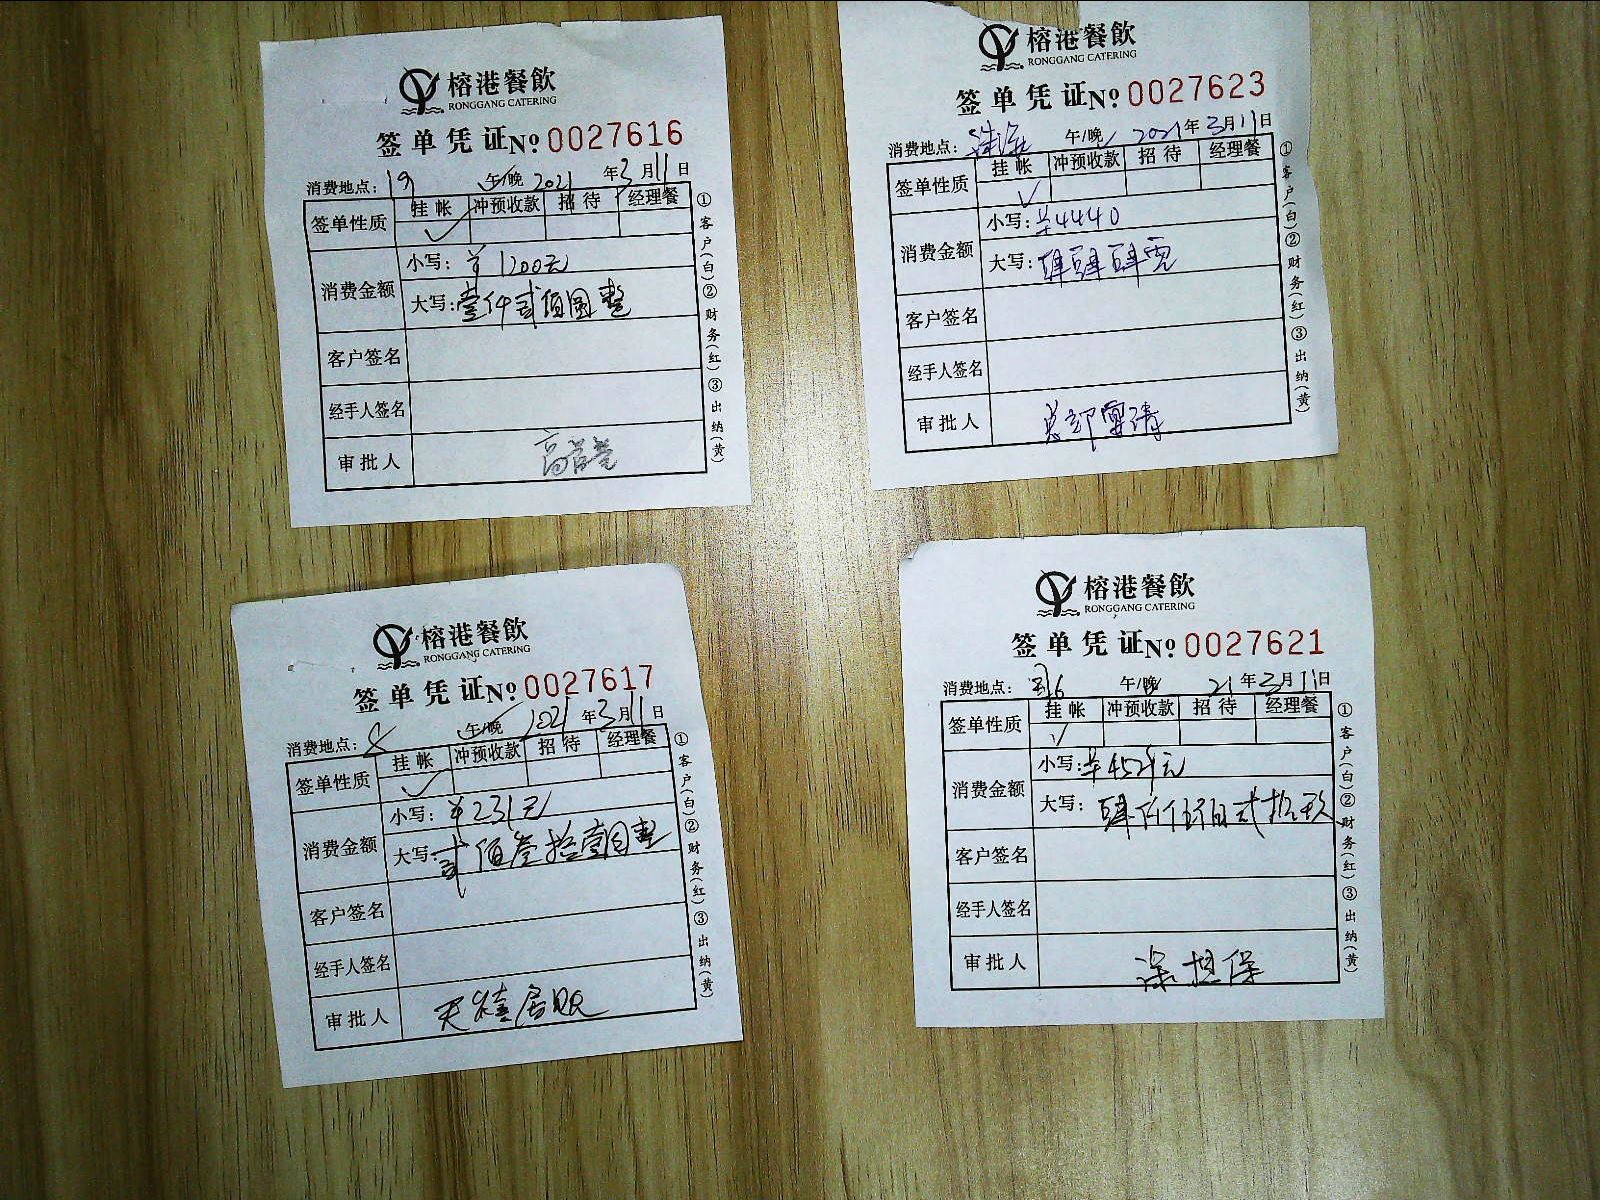 榕港餐飲
RONGGANG CATERING
签单凭证 № 0027616
消费地点: 19 午/晚 2021年3月11日
签单性质 挂帐 冲预收款 招待 经理餐
✓
消费金额
小写: ¥1200元
大写: 壹仟贰佰圆整
客户签名
经手人签名
审批人
①客户(白)②财务(红)③出纳(黄)
榕港餐飲
RONGGANG CATERING
签单凭证 № 0027623
消费地点: 珠海 午/晚 2021年3月11日
签单性质 挂帐 冲预收款 招待 经理餐
✓
消费金额
小写: ¥4440
大写: 肆肆肆零
客户签名
经手人签名
审批人 总部
①客户(白)②财务(红)③出纳(黄)
榕港餐飲
RONGGANG CATERING
签单凭证 № 0027617
消费地点: 8 午/晚 2021年3月11日
签单性质 挂帐 冲预收款 招待 经理餐
✓
消费金额
小写: ¥231元
大写: 贰佰叁拾壹圆整
客户签名
经手人签名
审批人
①客户(白)②财务(红)③出纳(黄)
榕港餐飲
RONGGANG CATERING
签单凭证 № 0027621
消费地点: 午/晚 21年3月11日
签单性质 挂帐 冲预收款 招待 经理餐
✓
消费金额
小写: ¥4529元
大写: 肆仟伍佰贰拾玖
客户签名
经手人签名
审批人 涂担保
①客户(白)②财务(红)③出纳(黄)